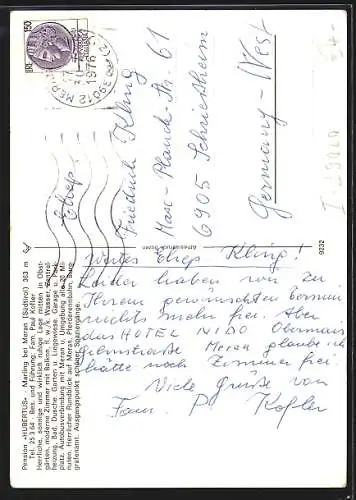 Pension »HUBERTUS« - Marling bei Meran (Südtirol) 363 m
Tel. 25 3 64 - Bes. und Führung: Fam. Paul Kofler
Herrliche, sonnige und wirklich ruhige Lage mitten in Obst-
gärten, moderne Zimmer mit Balkon, fl. w/k. Wasser, Zentral-
heizung, Bad, Dusche, Garten u. Liegewiese, Garage u. Park-
platz. Autobusverbindung mit Meran u. Umgebung alle 20 Mi-
nuten. Herrlicher Rundblick auf Meran, Pferderennbahn, Berg-
grafenamt. Ausgangspunkt schönster Spaziergänge.
150
39012 MERANO
1976
Ehep.
Friedrich Kling
Max-Planck-Str. 61
6905 Schriesheim
Germany-West
9232
Wertes Ehep Kling!
Leider haben wir zu
Ihrem gewünschten Termin
nichts mehr frei. Aber
das HOTEL NIDO Obermais
glaube ich
hätte noch Zimmer frei
Viele Grüße von
Fam. P Kofler